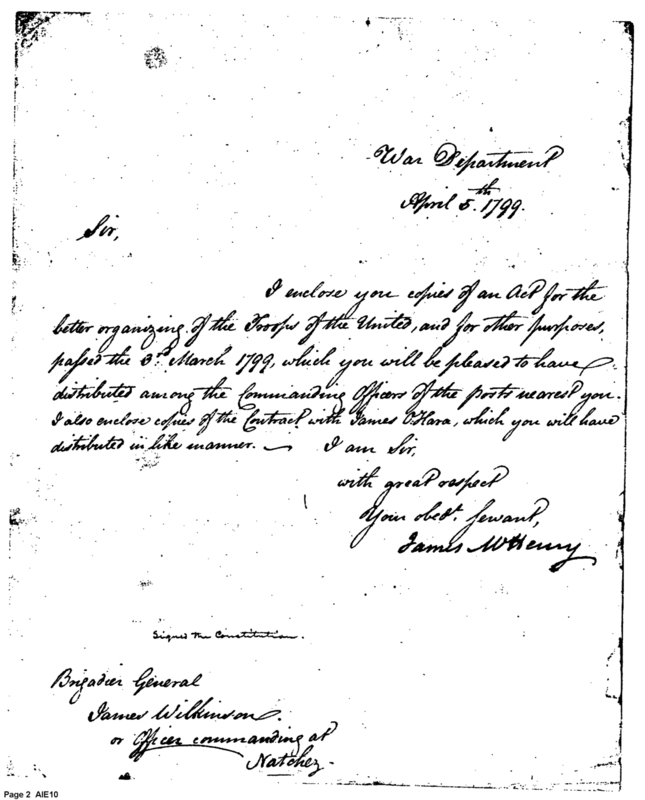 War Department
April 5.th 1799.
Sir,
I enclose you copies of an Act for the
better organizing of the Troops of the United, and for other purposes,
passed the 3.d March 1799, which you will be pleased to have
distributed among the Commanding Officers of the posts nearest you.
I also enclose copies of the Contract with James O'Hara, which you will have
distributed in like manner. — I am Sir,
with great respect
Your obedt. Servant,
James McHenry
Signed the Constitution.
Brigadier General
James Wilkinson.
or Officer commanding at
Natchez.
Page 2 AIE10